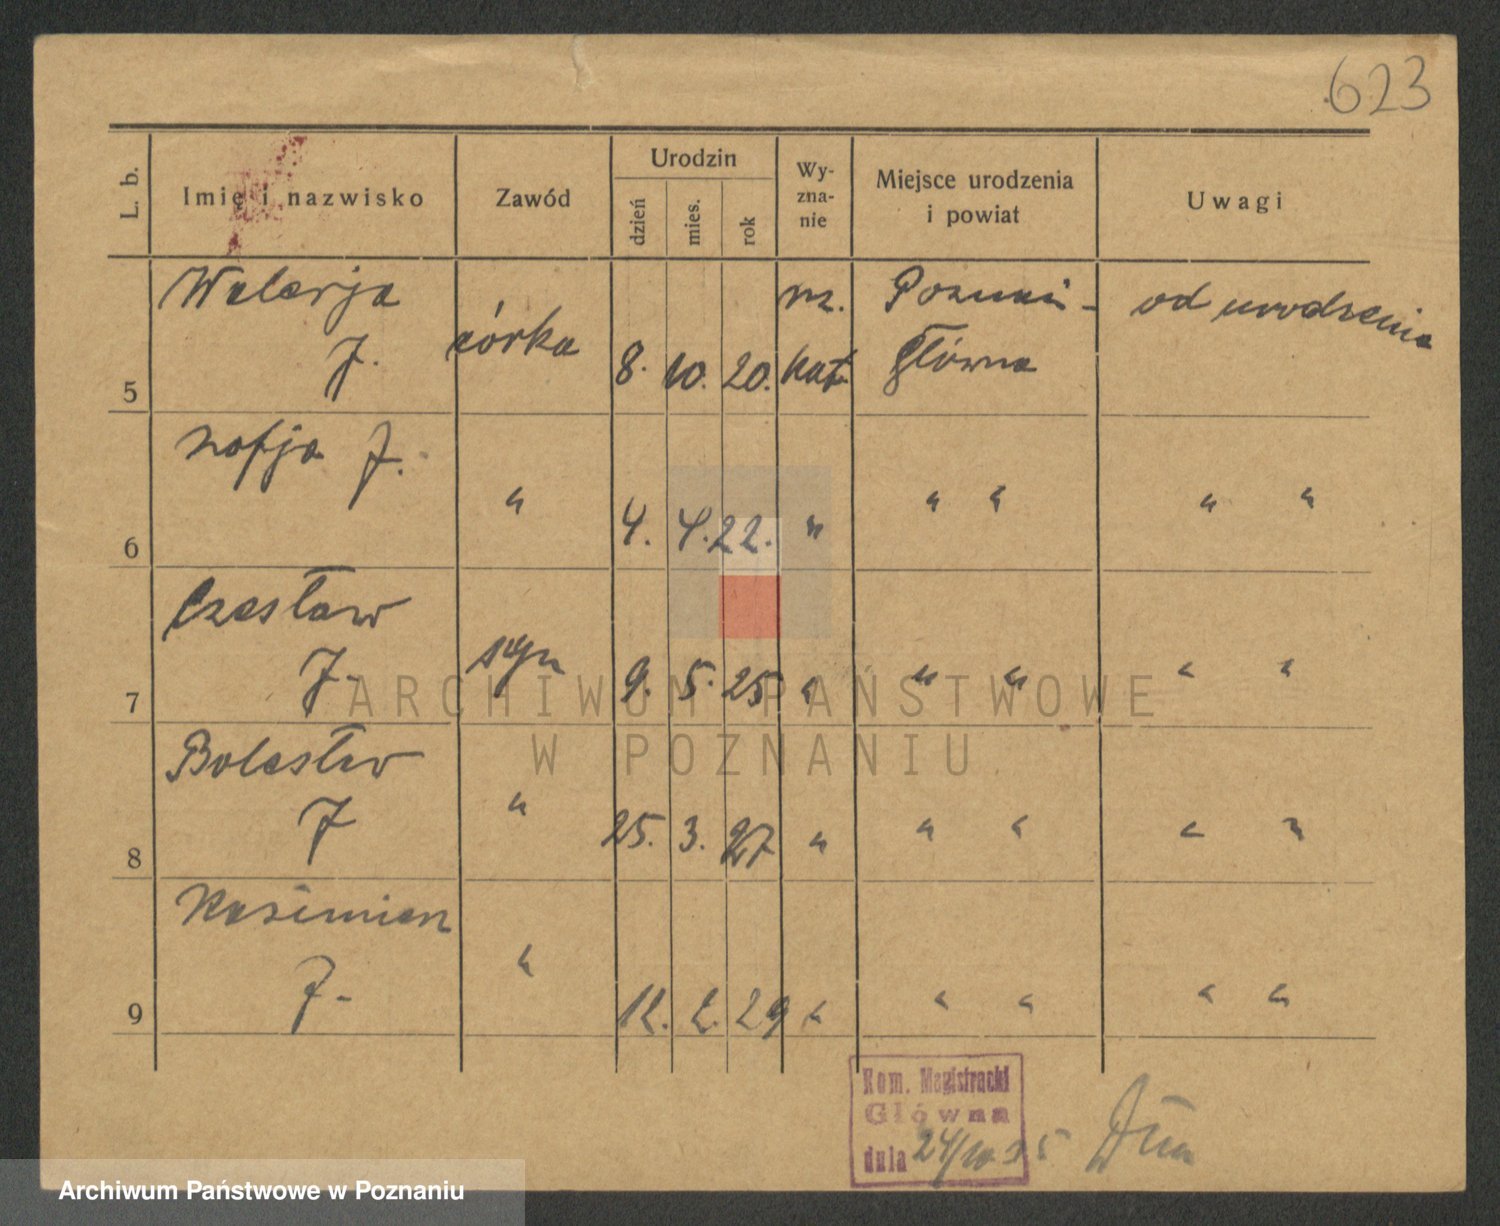 623
L. b.
Imię i nazwisko
Zawód
Urodzin
dzień
mies.
rok
Wy-
zna-
nie
Miejsce urodzenia
i powiat
Uwagi
Walerja
J.
5
córka
8. 10. 20.
rz.
kat.
Poznań -
Główna
od urodzenia
Zofja J.
6
"
4. 4. 22.
"
" "
" "
Czesław
J.
7
syn
9. 5. 25
"
" "
" "
Bolesław
J
8
"
25. 3. 27
"
" "
" "
Kazimierz
J.
9
"
12. 2. 29
"
" "
" "
Kom. Magistracki
Główna
dnia 24/10 35
ARCHIWUM PAŃSTWOWE
W POZNANIU
Archiwum Państwowe w Poznaniu